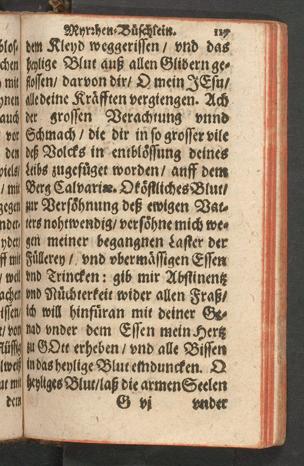 Myrrhen-Büschlein. 117
dem Kleyd weggerissen / vnd das
heylige Blut auß allen Glidern ge-
flossen / darvon dir / O mein JEsu /
alle deine Kräfften vergiengen. Ach
der grossen Verachtung vnnd
Schmach / die dir in so grosser vile
deß Volcks in entblössung deines
Leibs zugefüget worden / auff dem
Berg Calvariæ. O köstliches Blut /
zur Versöhnung deß ewigen Vat-
ters nohtwendig / versöhne mich we-
gen meiner begangnen Laster der
Füllerey / vnd vbermässigen Essen
vnd Trincken : gib mir Abstinentz
vnd Nüchterkeit wider allen Fraß /
ich will hinfüran mit deiner Ge-
nad vnder dem Essen mein Hertz
zu GOtt erheben / vnd alle Bissen
in das heylige Blut eindun­cken. O
heyliges Blut / laß die armen Seelen
G vj vnder